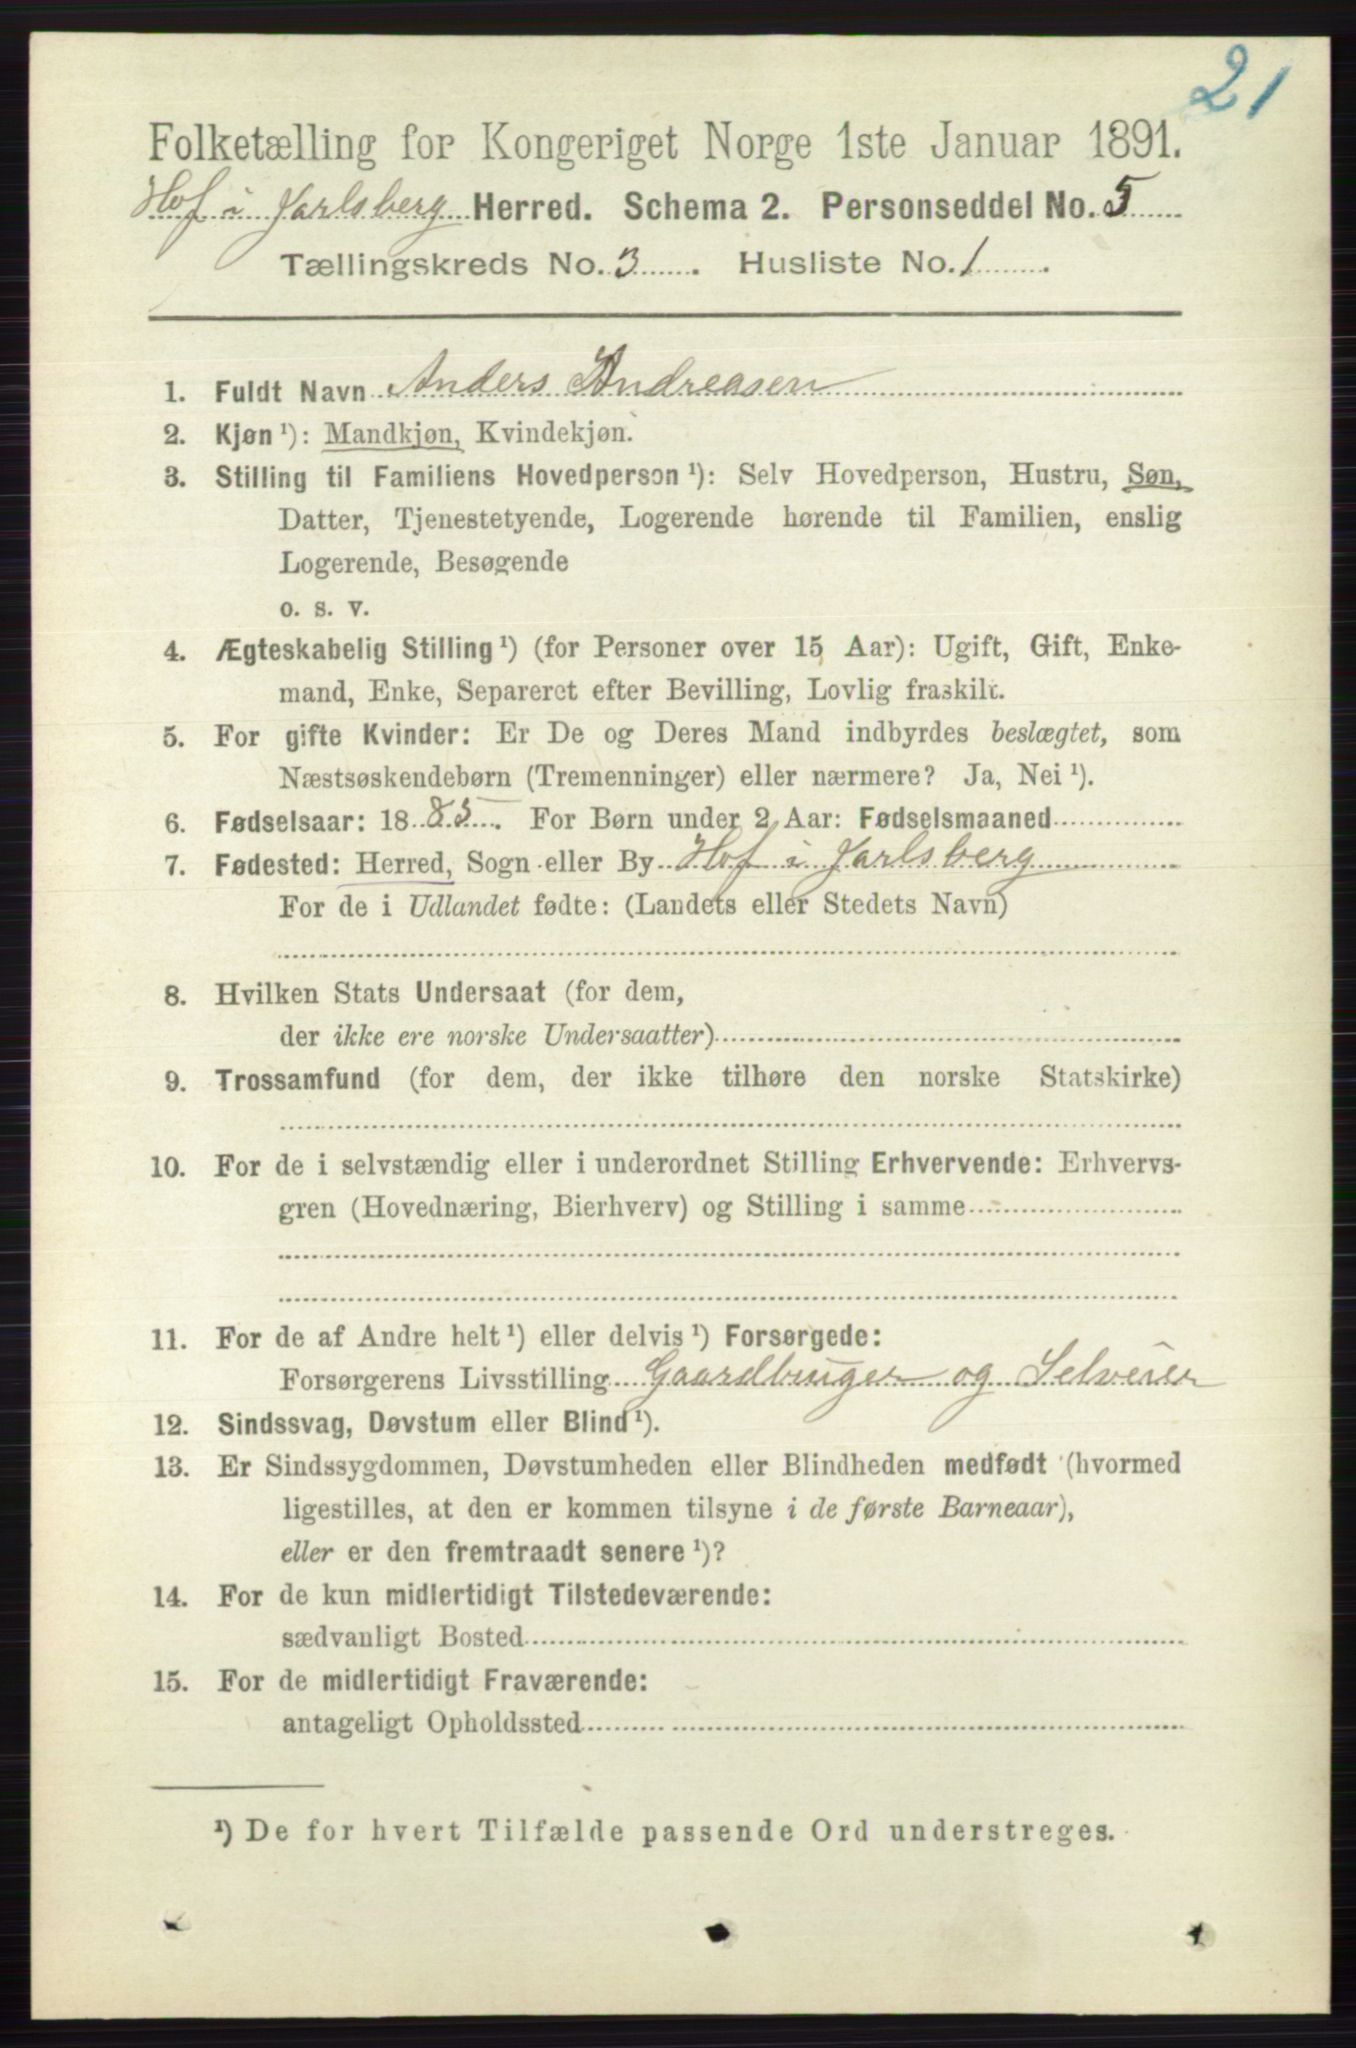 21
Folketælling for Kongeriget Norge 1ste Januar 1891.
Hof i Jarlsberg Herred. Schema 2. Personseddel No. 5
Tællingskreds No. 3. Husliste No. 1.
1. Fuldt Navn Anders Andreasen
2. Kjøn ¹): Mandkjøn, Kvindekjøn.
3. Stilling til Familiens Hovedperson ¹): Selv Hovedperson, Hustru, Søn,
Datter, Tjenestetyende, Logerende hørende til Familien, enslig
Logerende, Besøgende
o. s. v.
4. Ægteskabelig Stilling ¹) (for Personer over 15 Aar): Ugift, Gift, Enke-
mand, Enke, Separeret efter Bevilling, Lovlig fraskilt.
5. For gifte Kvinder: Er De og Deres Mand indbyrdes beslægtet, som
Næstsøskendebørn (Tremenninger) eller nærmere? Ja, Nei ¹).
6. Fødselsaar: 1885. For Børn under 2 Aar: Fødselsmaaned
7. Fødested: Herred, Sogn eller By Hof i Jarlsberg
For de i Udlandet fødte: (Landets eller Stedets Navn)
8. Hvilken Stats Undersaat (for dem,
der ikke ere norske Undersaatter)
9. Trossamfund (for dem, der ikke tilhøre den norske Statskirke)
10. For de i selvstændig eller i underordnet Stilling Erhvervende: Erhvervs-
gren (Hovednæring, Bierhverv) og Stilling i samme
11. For de af Andre helt ¹) eller delvis ¹) Forsørgede:
Forsørgerens Livsstilling Gaardbruger og Selveier
12. Sindssvag, Døvstum eller Blind ¹).
13. Er Sindssygdommen, Døvstumheden eller Blindheden medfødt (hvormed
ligestilles, at den er kommen tilsyne i de første Barneaar),
eller er den fremtraadt senere ¹)?
14. For de kun midlertidigt Tilstedeværende:
sædvanligt Bosted
15. For de midlertidigt Fraværende:
antageligt Opholdssted
¹) De for hvert Tilfælde passende Ord understreges.